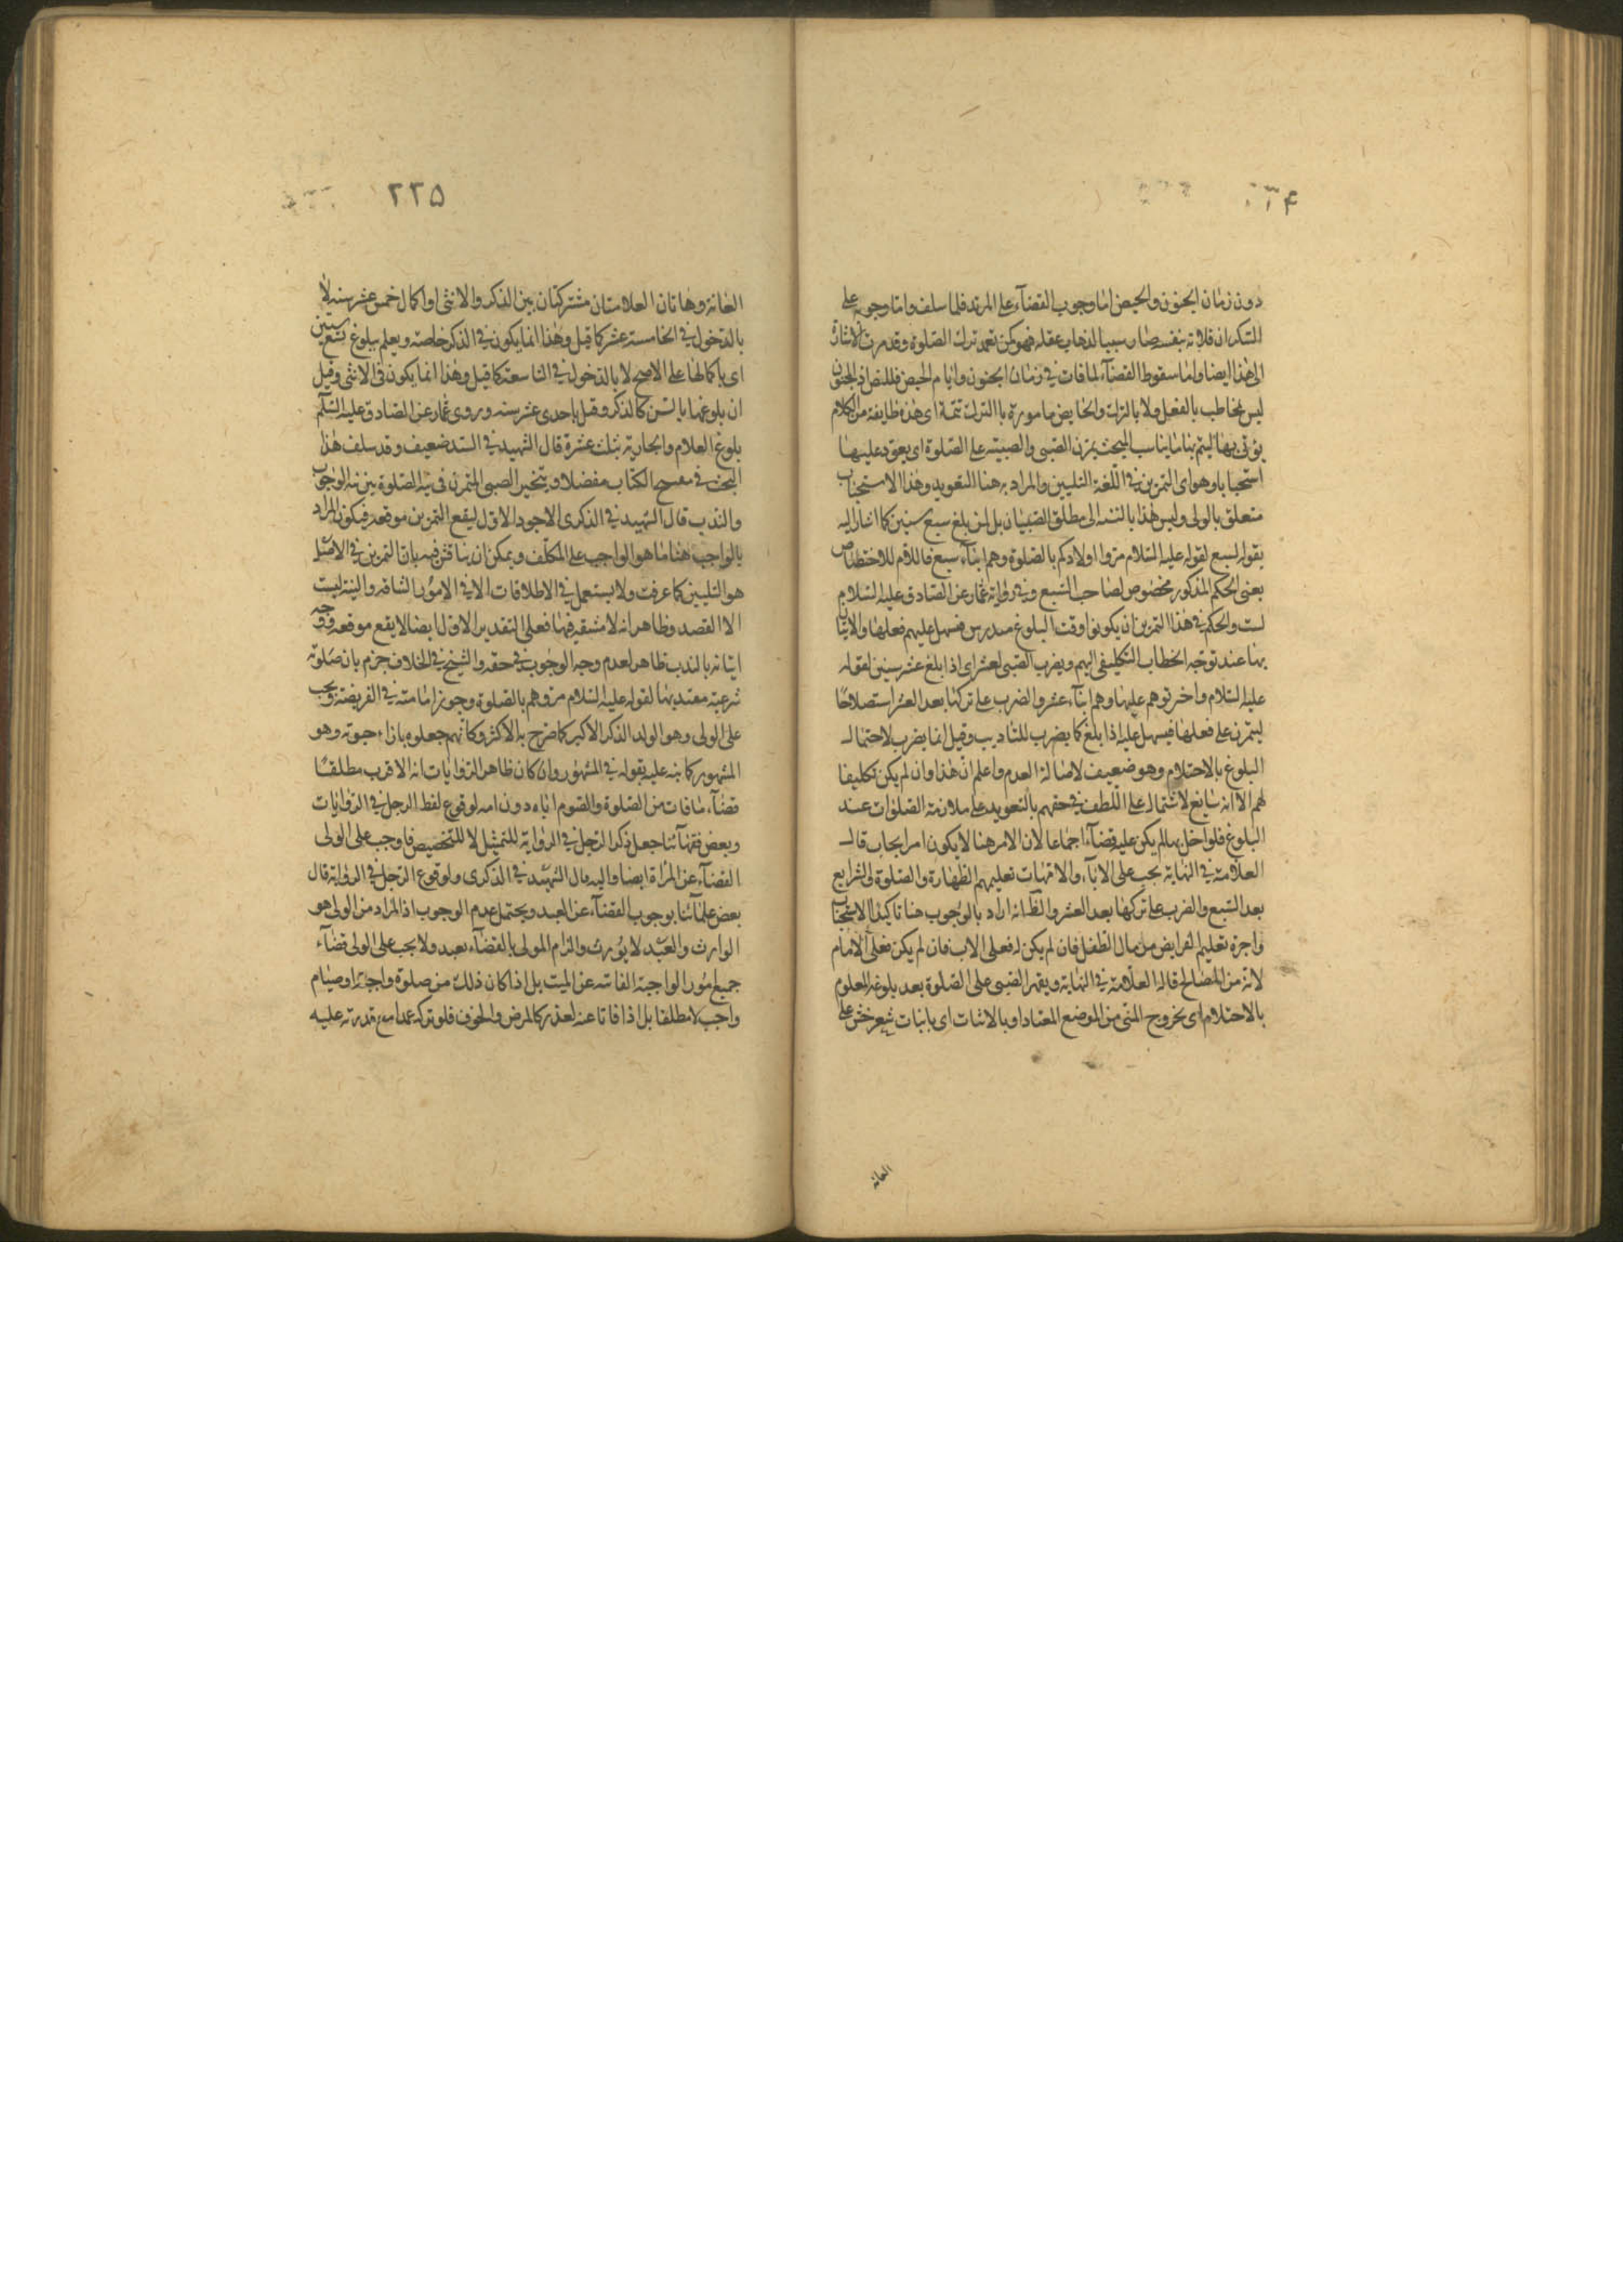 دون زمان الجنون والحيض اما وجوب القضآء على المرتد فلما سلف واما وجوبه على
السكران فلانه بنفسه صار سببا لذهاب عقله فهو كمن تعمد ترك الصلوة وقد مرت الاشارة
الى هذا ايضا واما سقوط القضآء لما فات فى زمان الجنون وايام الحيض فللنص اذ المجنون
ليس مخاطب بالفعل ولا بالترك والحايض مامورة باالترك تتمة اى هذه طايفة من الكلام
يؤتى بها ليتم بها ما يناسب المبحث يمرن الصبى والصبية على الصلوة اى يعود عليها
استحبابا وهو اى التمرين فى اللغة التليين والمراد به هنا التعويد وهذا الاستحباب
متعلق بالولى وليس هذا بالنسبة الى مطلق الصبيان بل لمن بلغ سبع سنين كما اشار اليه
بقوله لسبع لقوله عليه السلام مروا اولادكم بالصلوة وهم ابنآء سبع فاللام للاختصاص
يعنى الحكم المذكور مخصوص لصاحب السبع وفى رواية عمار عن الصادق عليه السلام
لست والحكم فى هذا التمرين ان يكونوا وقت البلوغ فيسهل عليهم فعلها والاتيان
بها عند توجه الخطاب التكليفى اليهم ويضرب الصبى لعشر اى اذا بلغ عشر سنين لقوله
عليه السلام واضربوهم عليها وهم ابنآء عشر والضرب على تركها بعد العشر استصلاحا
ليتمرن على فعلها فيسهل عليه اذا بلغ كما يضرب للتاديب وقيل انما يضرب لاحتمال
البلوغ بالاحتلام وهو ضعيف لاصالة العدم واعلم ان هذا وان لم يكن تكليفا
لهم الا انه سايغ لاشتماله على اللطف فى حقهم بالتعويد على ملازمة الصلوات عند
البلوغ فلو اخل بها لم يكن عليه قضآء اجماعا لان الامر هنا لا يكون امر ايجاب قال
العلامة فى النهاية يجب على الابآء والامهات تعليمهم الطهارة والصلوة والشرايع
بعد السبع والضرب على تركها بعد العشر والظ انه اراد بالوجوب هنا تاكيد الاستحباب
واجرة تعليم الفرايض من مال الطفل فان لم يكن له فعلى الاب فان لم يكن فعلى الامام
لانه من المصالح قاله العلامة فى النهاية ويقهر الصبى على الصلوة بعد بلوغه المعلوم
بالاحتلام اى بخروج المنى من الموضع المعتاد او بالانبات اى بانبات شعر خشن على
العانة
٢٢٥
العانة وهاتان العلامتان مشتركتان بين الذكر والانثى او اكمال خمس عشر سنة لا
بالدخول فى الخامسة عشر كما قيل وهذا انما يكون فى الذكر خاصة ويعلم ببلوغ تسع سنين
اى باكمالها على الاصح لا بالدخول فى التاسعة كما قيل وهذا انما يكون فى الانثى وقيل
ان بلوغها بالسن كالذكر وقيل باحدى عشر سنة وروى عمار عن الصادق عليه السلم
بلوغ الغلام والجارية بثلث عشرة قال الشهيد فى السند ضعيف وقد سلف هذا
البحث فى الكتاب مفصلا ويتخير الصبى المتمرن فى نية الصلوة بين نية الوجوب
والندب قال الشهيد فى الذكرى الاجود الاول ليقع التمرين موقعه فيكون المراد
بالواجب هنا ما هو الواجب على المكلف ويمكن ان يناقش فيه بان التمرين فى الاصل
هو التليين كما عرفت ولا يستعمل فى الاطلاقات الا فى الامور الشاقه والنية ليست
الا القصد وظاهر انه لا مشقه فيها فعلى التقدير الاول ايضا لا يقع موقعه ووجه
اتيانه بالندب ظاهر لعدم وجه الوجوب فى حقه والشيخ فى الخلاف جزم بان صلوته
شرعية معتد بها لقوله عليه السلام مروهم بالصلوة وجوز امامته فى الفريضة ويجب
على الولى وهو الولد الذكر الاكبر كما صرح به الاكثر وكانهم جعلوه بازاء حبوته وهو
المشهور كما نبه عليه بقوله فى المشهور وان كان ظاهر الروايات انه الاقرب مطلقا
قضآء ما فات من الصلوة والصوم اباه دون امه لوقوع لفظ الرجل فى الروايات
وبعض فقهآئنا جعل ذكر الرجل فى الرواية للتمثيل لا للتخصيص فاوجب على الولى
القضآء عن المراة ايضا واليه مال الشهيد فى الذكرى ولوقوع الرجل فى الرواية قال
بعض علمآئنا بوجوب القضآء عن العبد ويحتمل عدم الوجوب اذ المراد من الولى هو
الوارث والعبد لا يورث والزام المولى بالقضآء بعيد ولا يجب على الولى قضآء
جميع امور الواجبة الفائتة عن الميت بل اذا كان ذلك من صلوة واجبة او صيام
واجب لا مطلقا بل اذا فاتا عنه لعذر كالمرض والخوف فلو تركه عمدا مع قدرته عليه